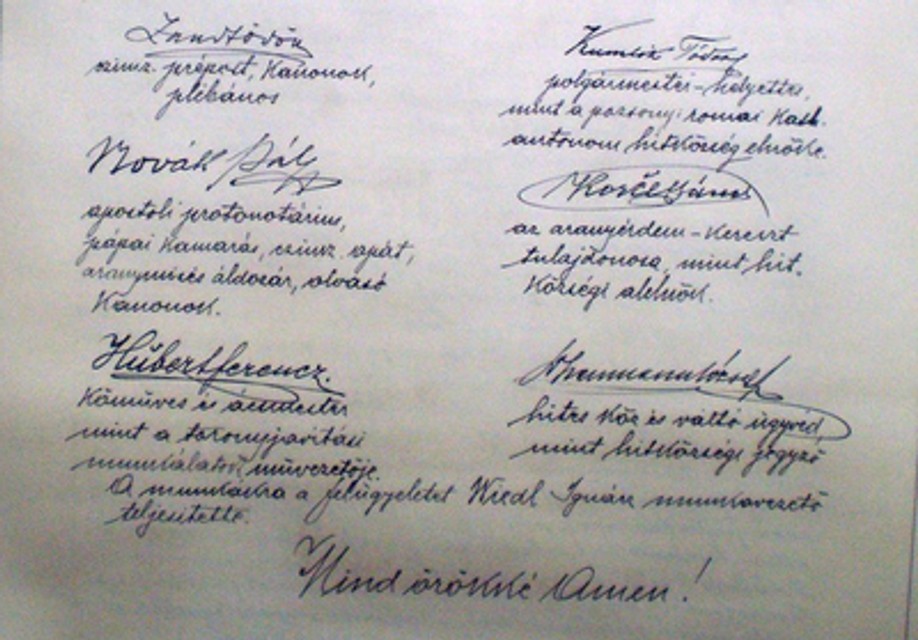 czimz. prépost, Kanonok,
plébános
Novák Pál
apostoli protonotárius,
pápai Kamarás, czimz. apát,
aranymisés áldozár, olvasó
Kanonok.
Hubert ferencz.
Kőmüves és ácmester
mint a toronyjavitási
munkálatok müvezetője.
Kumlik Tódor
polgármester-helyettes,
mint a pozsonyi romai Kath.
autonom hitközség elnöke.
János
az aranyérdem-Kereszt
tulajdonosa, mint hit-
Községi alelnök.
József
hites Köz és váltó ügyvéd
mint hitközségi jegyző
A munkákra a felügyeletet Wiedl Ignácz munkavezető
teljesitette.
Mind örökké Amen!